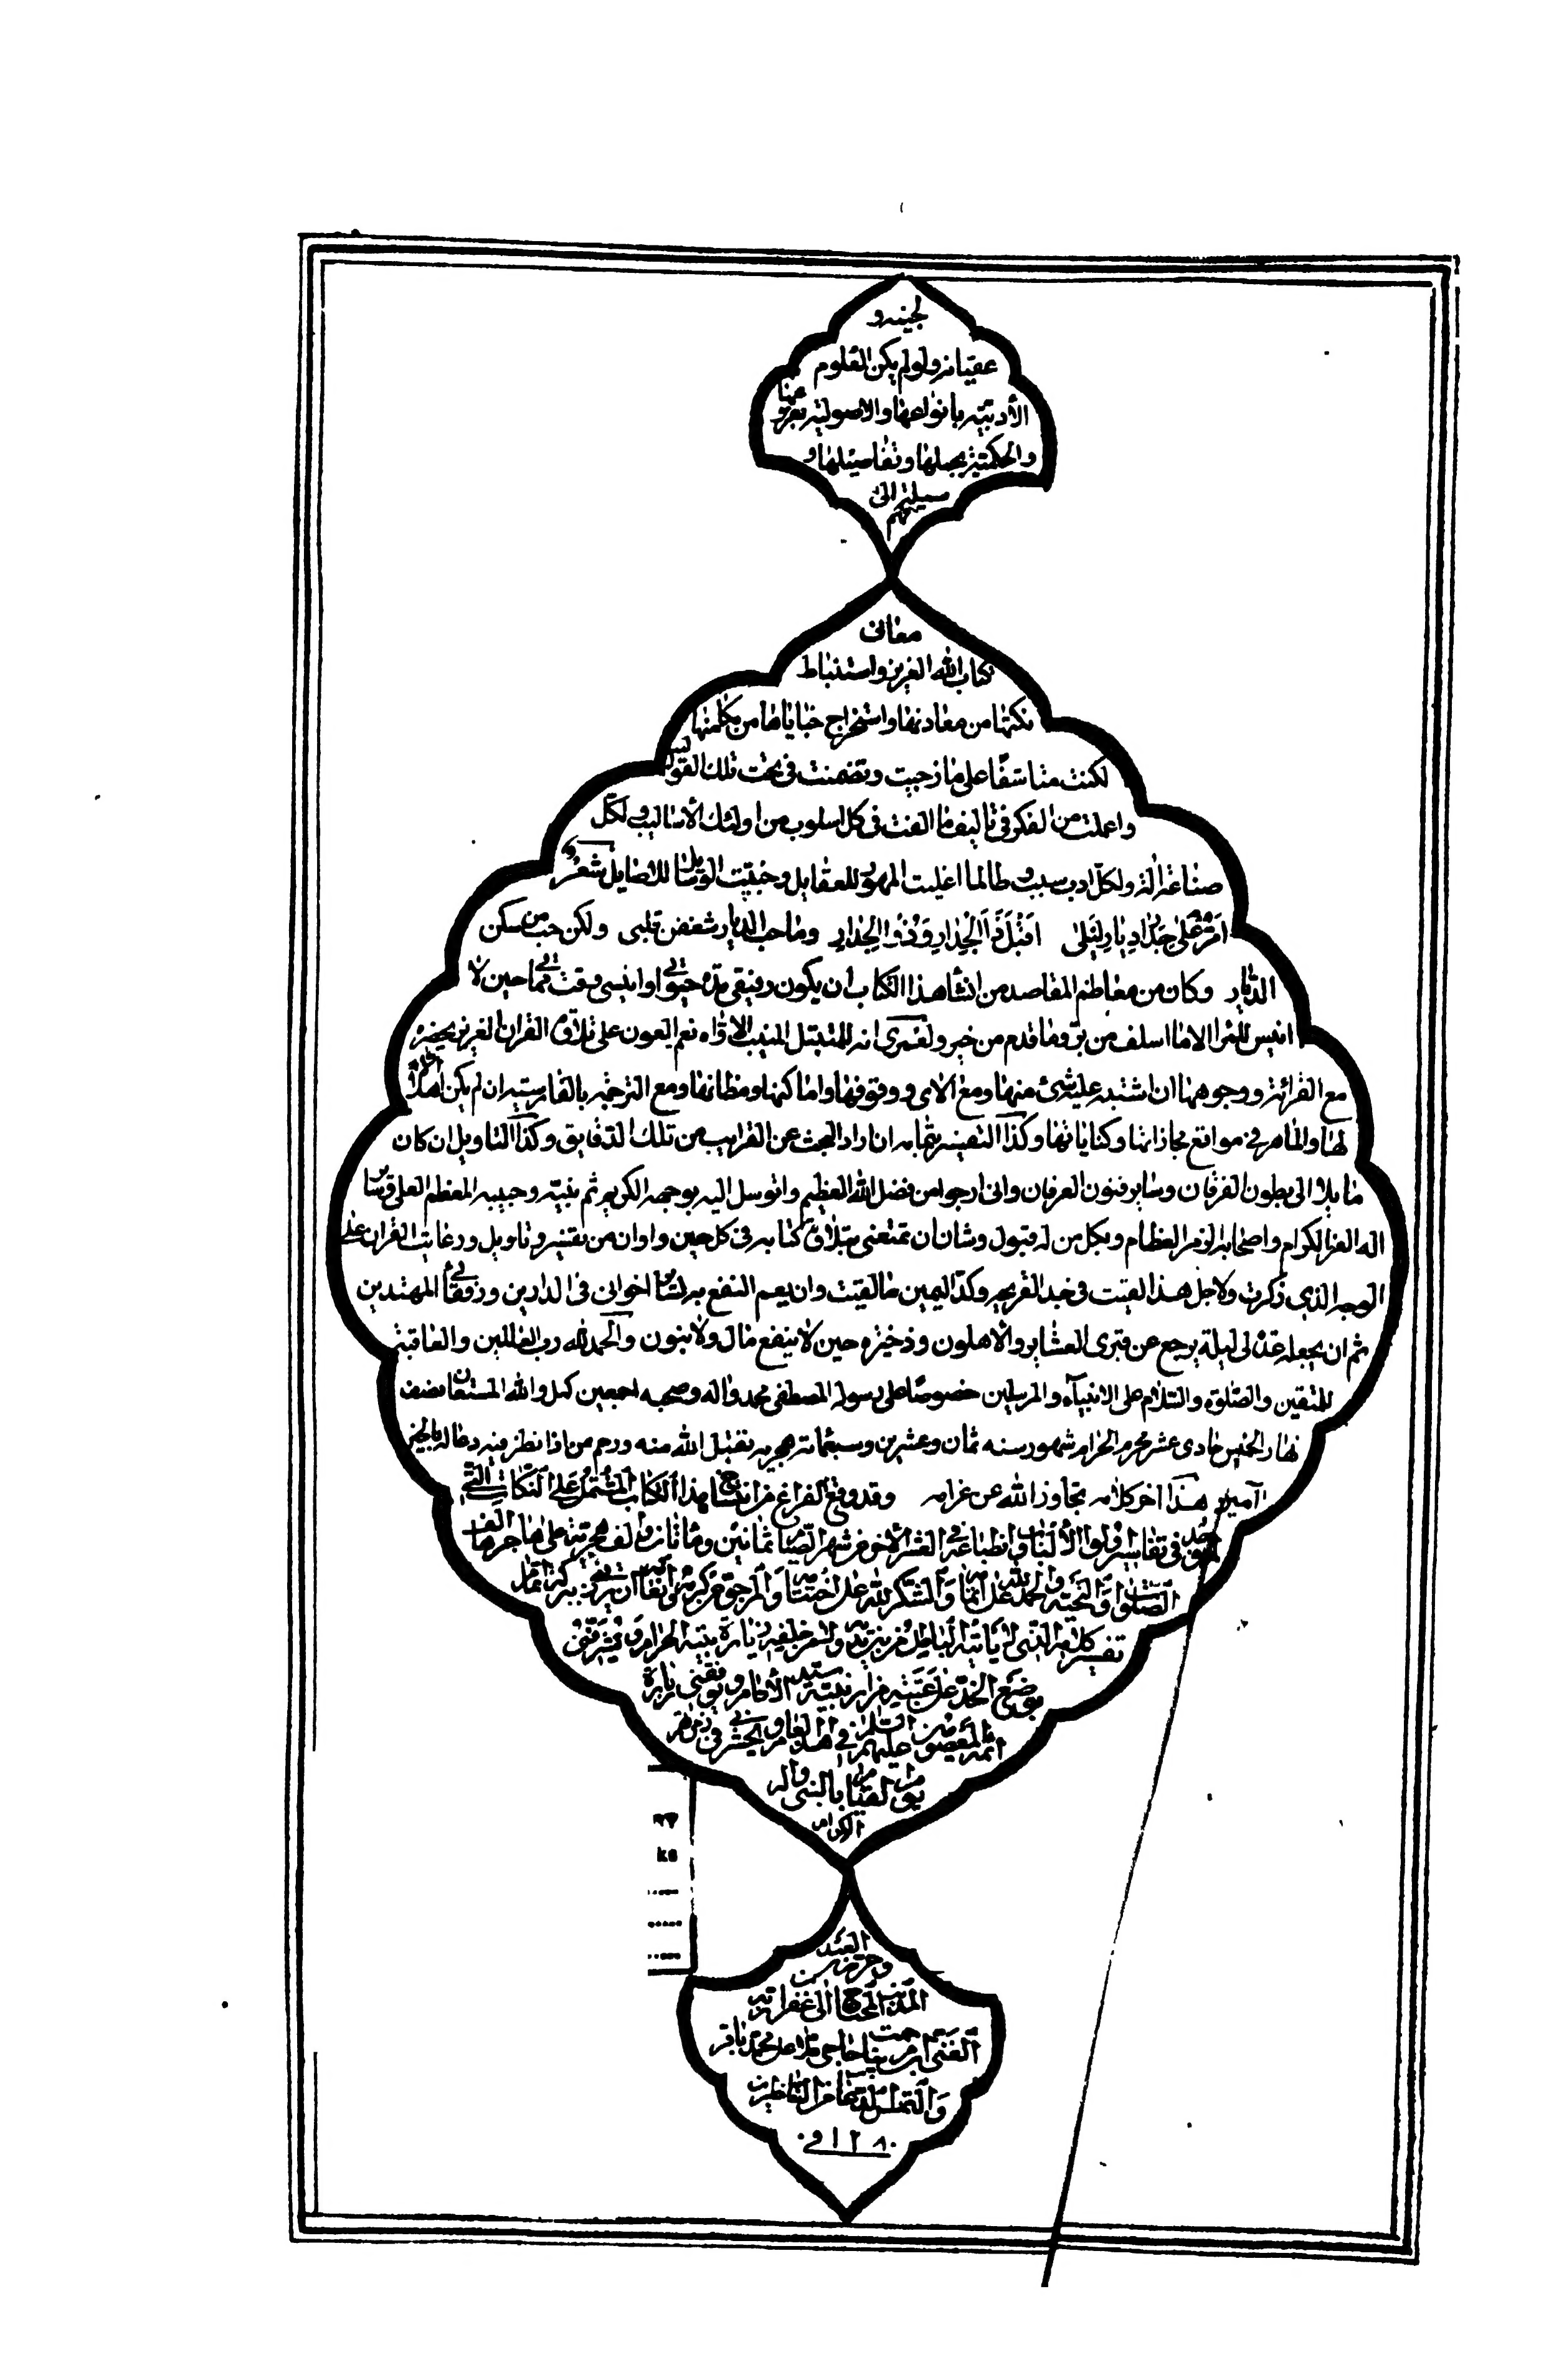 لجينه و
عقيانه ولو لم يكن العلوم
الأدبيّة بأنواعها والاصولية بفروعها
والحكميّة بجملها وتفاصيلها و
سيلة الى فهم
معانى
كتاب الله العزيز واستنباط
نكتها من معادنها واستخراج خباياها من مكامنها
لكنت متاسفًا على ما ازجيت وتضمنت فى بحث تلك القوا
واعملت من الفكر فى تاليف ما الفت فى كل اسلوب من اولئك الأساليب ولكلّ
صناعة الة ولكلّ ادب سبب و طالما اغليت المهور للعقايل وخبيت الوسايل للاضايل شعر
امرّ على جدار ديار ليلى اقبّل ذا الجدار وذو الجدار وما حب الديار شغفن قلبى ولكن حب من سكن
الديار وكان من معاظم المقاصد من انشاء هذا الكتاب ان يكون رفيقى مدة حيوتى وانيسى وقت مماتى حين لا
انيس للمرا الا ما اسلف من بر وما قدم من خير ولعمرى انه للمتبتل المنيب الاواه نعم العون على تلاوة القران العزيز بحضرة
مع القرائة ووجوهها ان اشتبه عليه شئ منها ومع الاى ووقوفها واماكنها ومظانها ومع الترجمة بالفارسية ان لم يكن اهلا
لها والماهر فى مواقع مجازاتها وكناياتها وكذا التفسير بتمامه ان اراد البحث عن الغرايب من تلك الدقايق وكذا التاويل ان كان
مايلا الى بطون الفرقان وساير فنون العرفان وانى ارجو من فضل الله العظيم واتوسل اليه بوجهه الكريم ثم بنبيّه وحبيبه المعظم العلى وساير
اله الغر الكرام واصحابه الزهر العظام وبكل من له قبول وشان ان تمتعنى بتلاوة كتابه فى كل حين واوان من تفسير وتاويل ورعايت القران على
الوجه الذى ذكرت ولاجل هذا لقيت فى خبد القريحة وكدّ اليمين ما لقيت وان يعم النفع به لسائر اخوانى فى الدارين ورفقائى المهتدين
ثم ان يجعله عدّتى ليلة يرجع عن قبرى العشاير والاهلون وذخيرة حين لا ينفع مال ولا بنون والحمد لله رب العالمين والعاقبة
للمتقين والصلوة والسّلام على الانبياء والمرسلين خصوصًا على رسوله المصطفى محمد واله وصحبه اجمعين كمل والله المستعان نصف
نهار الخميس حادى عشر محرم الحرام شهور سنه ثمان وعشرين وسبعمائة هجريه تقبل الله منه ورحم من اذا نظر فيه دعا له بالخير
آمين هذا اخر كلامه تجاوز الله عن غرامه وقد وقع الفراغ من انتساخ هذا الكتاب المشتمل على النكات التى
لم يوجد فى تفاسير اولوا الألباب وانطباعه فى العشر الأخر من شهر الصيام ثمانين ومأتان والف هجرية على هاجرها الف
الصلوات والتحية والحمد لله على اتمامه والشكر لله على اختتامه والمرجو من كرمه تعالى
تفسير كلامه الذى لا يأتيه الباطل من بين يديه ولا من خلفه زيارة بيته الحرام ويشرفنى
بوضع الخدّ على عتبة مزار نبيّه سيّد الأنام ويوفقنى زيارة
ائمة المعصومين عليهم السلام فى هذا العام ويحشرنى فى زمرتهم
يوم القيام بالنبى واله
الكرام
وحرره العبد
المذنب المحتاج الى غفران ربه
الغنى ابن مرحمت پناه حاجى ملا على محمد باقر
والتماس الدعا من الناظرين
١٢٨٠